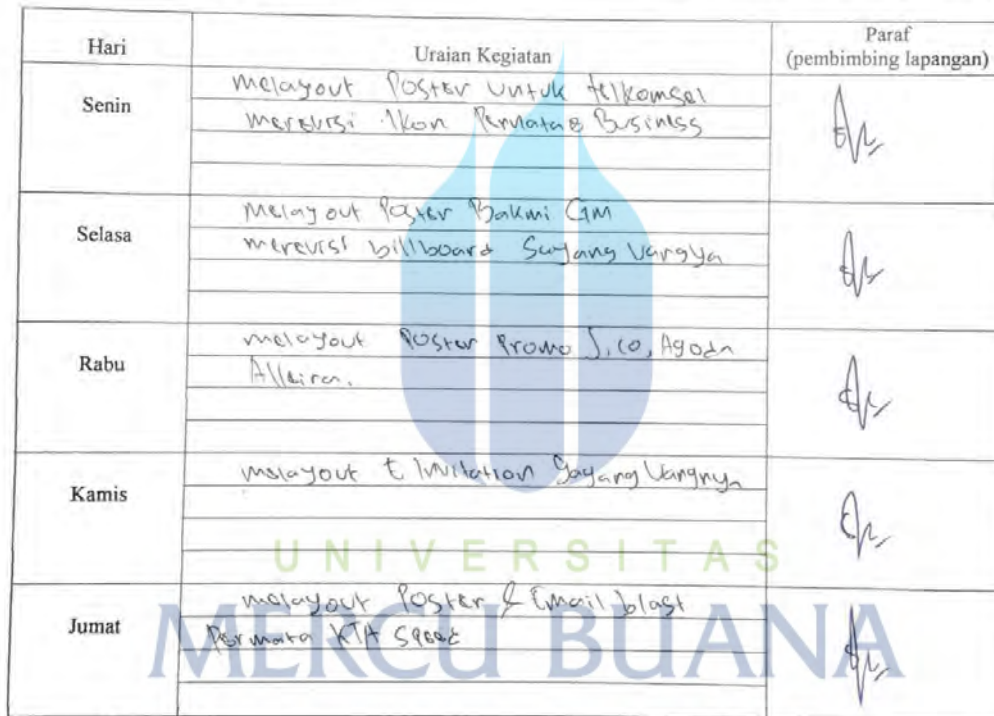 Hari
Uraian Kegiatan
Paraf
(pembimbing lapangan)
Senin
melayout Poster untuk telkomsel
merevisi Ikon Permata e Business
Selasa
melayout Poster Bakmi GM
merevisi billboard Sayang Uangya
Rabu
melayout Poster Promo J.co, Agoda
Alleira.
Kamis
melayout E Invitation Sayang Uangnya
Jumat
melayout Poster & Email blast
Permata KTA Speed
UNIVERSITAS
MERCU BUANA